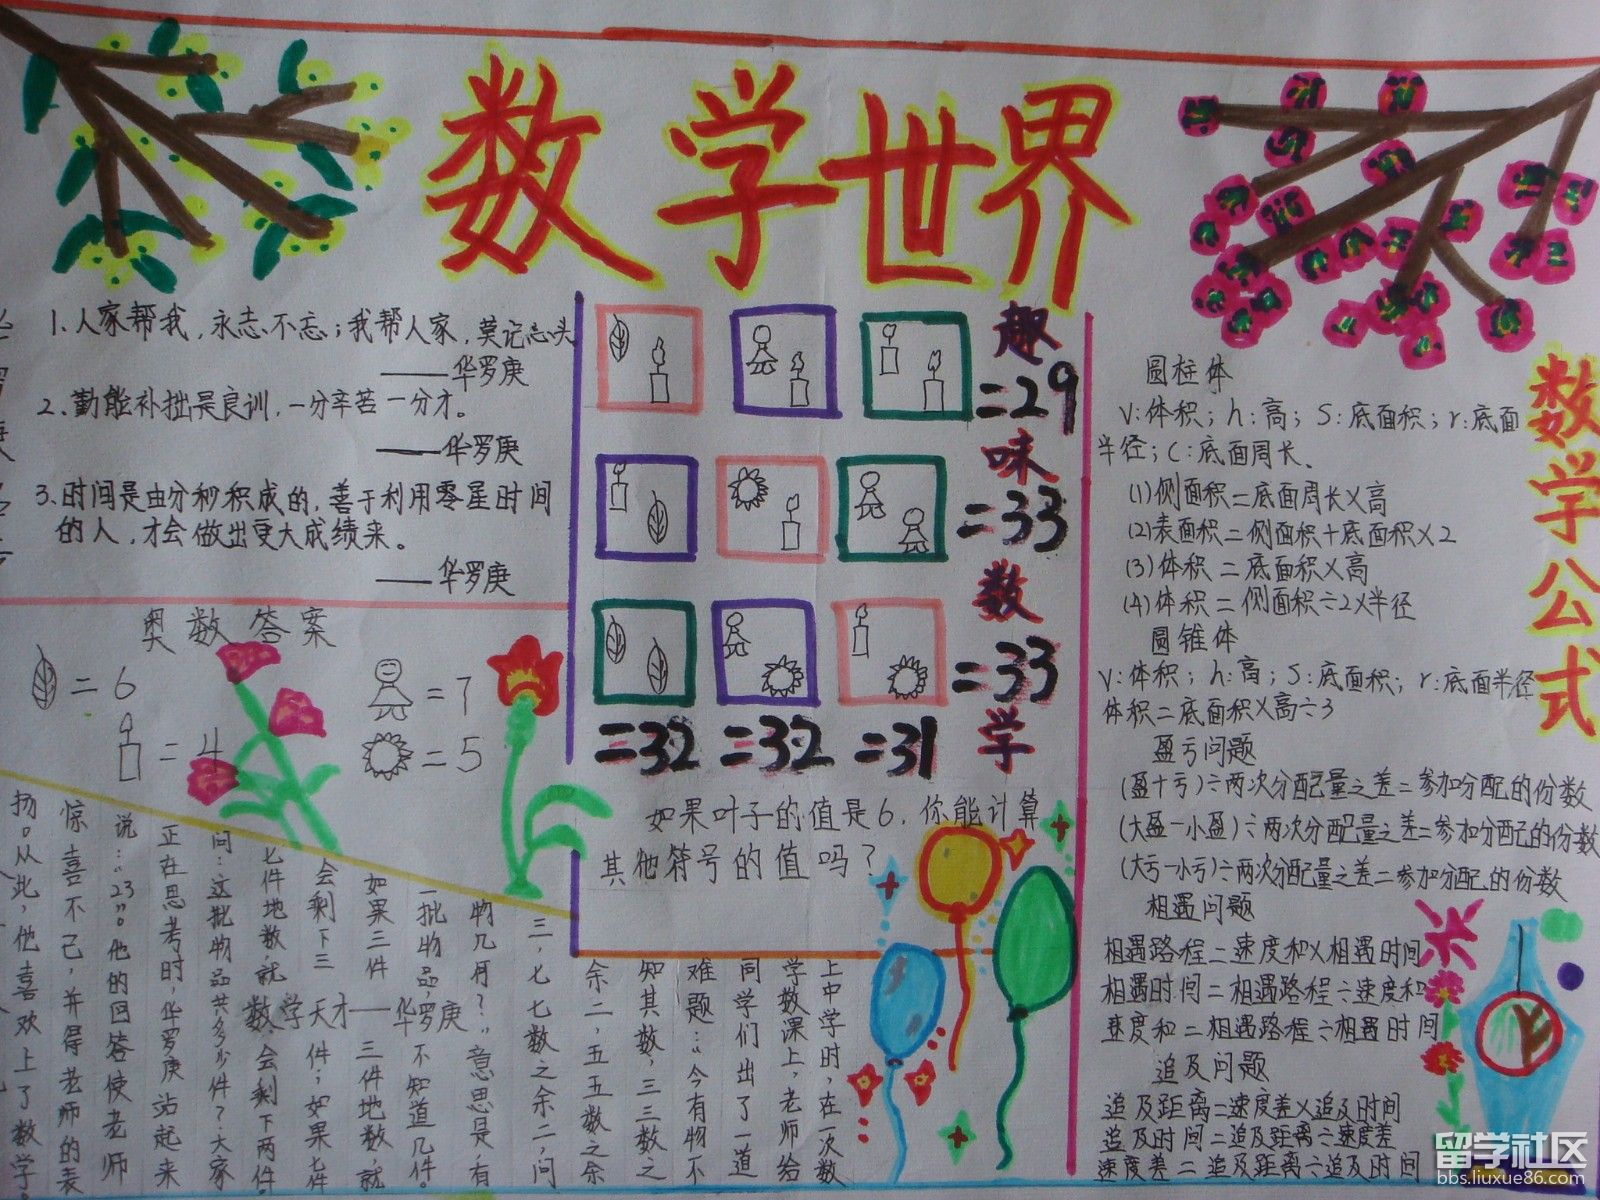 数学世界
1.人家帮我,永志不忘;我帮人家,莫记心头
——华罗庚
2.勤能补拙是良训,一分辛苦一分才。
——华罗庚
3.时间是由分秒积成的,善于利用零星时间
的人,才会做出更大成绩来。
——华罗庚
奥数答案
=6
=7
=4
=5
趣味数学
=29
=33
=33
=32 =32 =31
如果叶子的值是6,你能计算
其他符号的值吗?
数学公式
圆柱体
V:体积;h:高;S:底面积;r:底面
半径;C:底面周长、
(1)侧面积=底面周长×高
(2)表面积=侧面积+底面积×2
(3)体积=底面积×高
(4)体积=侧面积÷2×半径
圆锥体
V:体积;h:高;S:底面积;r:底面半径
体积=底面积×高÷3
盈亏问题
(盈+亏)÷两次分配量之差=参加分配的份数
(大盈-小盈)÷两次分配量之差=参加分配的份数
(大亏-小亏)÷两次分配量之差=参加分配的份数
相遇问题
相遇路程=速度和×相遇时间
相遇时间=相遇路程÷速度和
速度和=相遇路程÷相遇时间
追及问题
追及距离=速度差×追及时间
追及时间=追及距离÷速度差
速度差=追及距离÷追及时间
数学天才——华罗庚
上中学时,在一次数
学数课上,老师给
同学们出了一道
难题:“今有物不
知其数,三三数之
余二,五五数之余
三,七七数之余二,问
物几何?”意思是,有
一批物品,不知道几件。
如果三件三件地数,就
会剩下三件;如果七件
七件地数,就会剩下两件。
问:这批物品共多少件?大家
正在思考时,华罗庚站起来
说:“23”。他的回答使老师
惊喜不已,并得老师的表
扬。从此,他喜欢上了数学。
留学社区
bbs.liuxue86.com